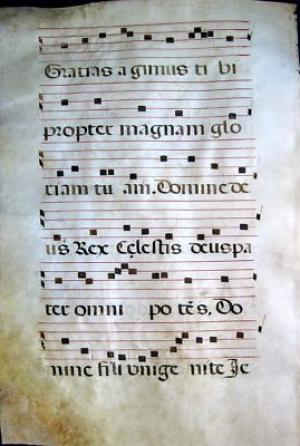 Gratias a gimus ti bi
propter magnam glo
riam tu am. Domine de
us Rex Celestis deus pa
ter omni po tēs, Do
mine fili unige nite Je